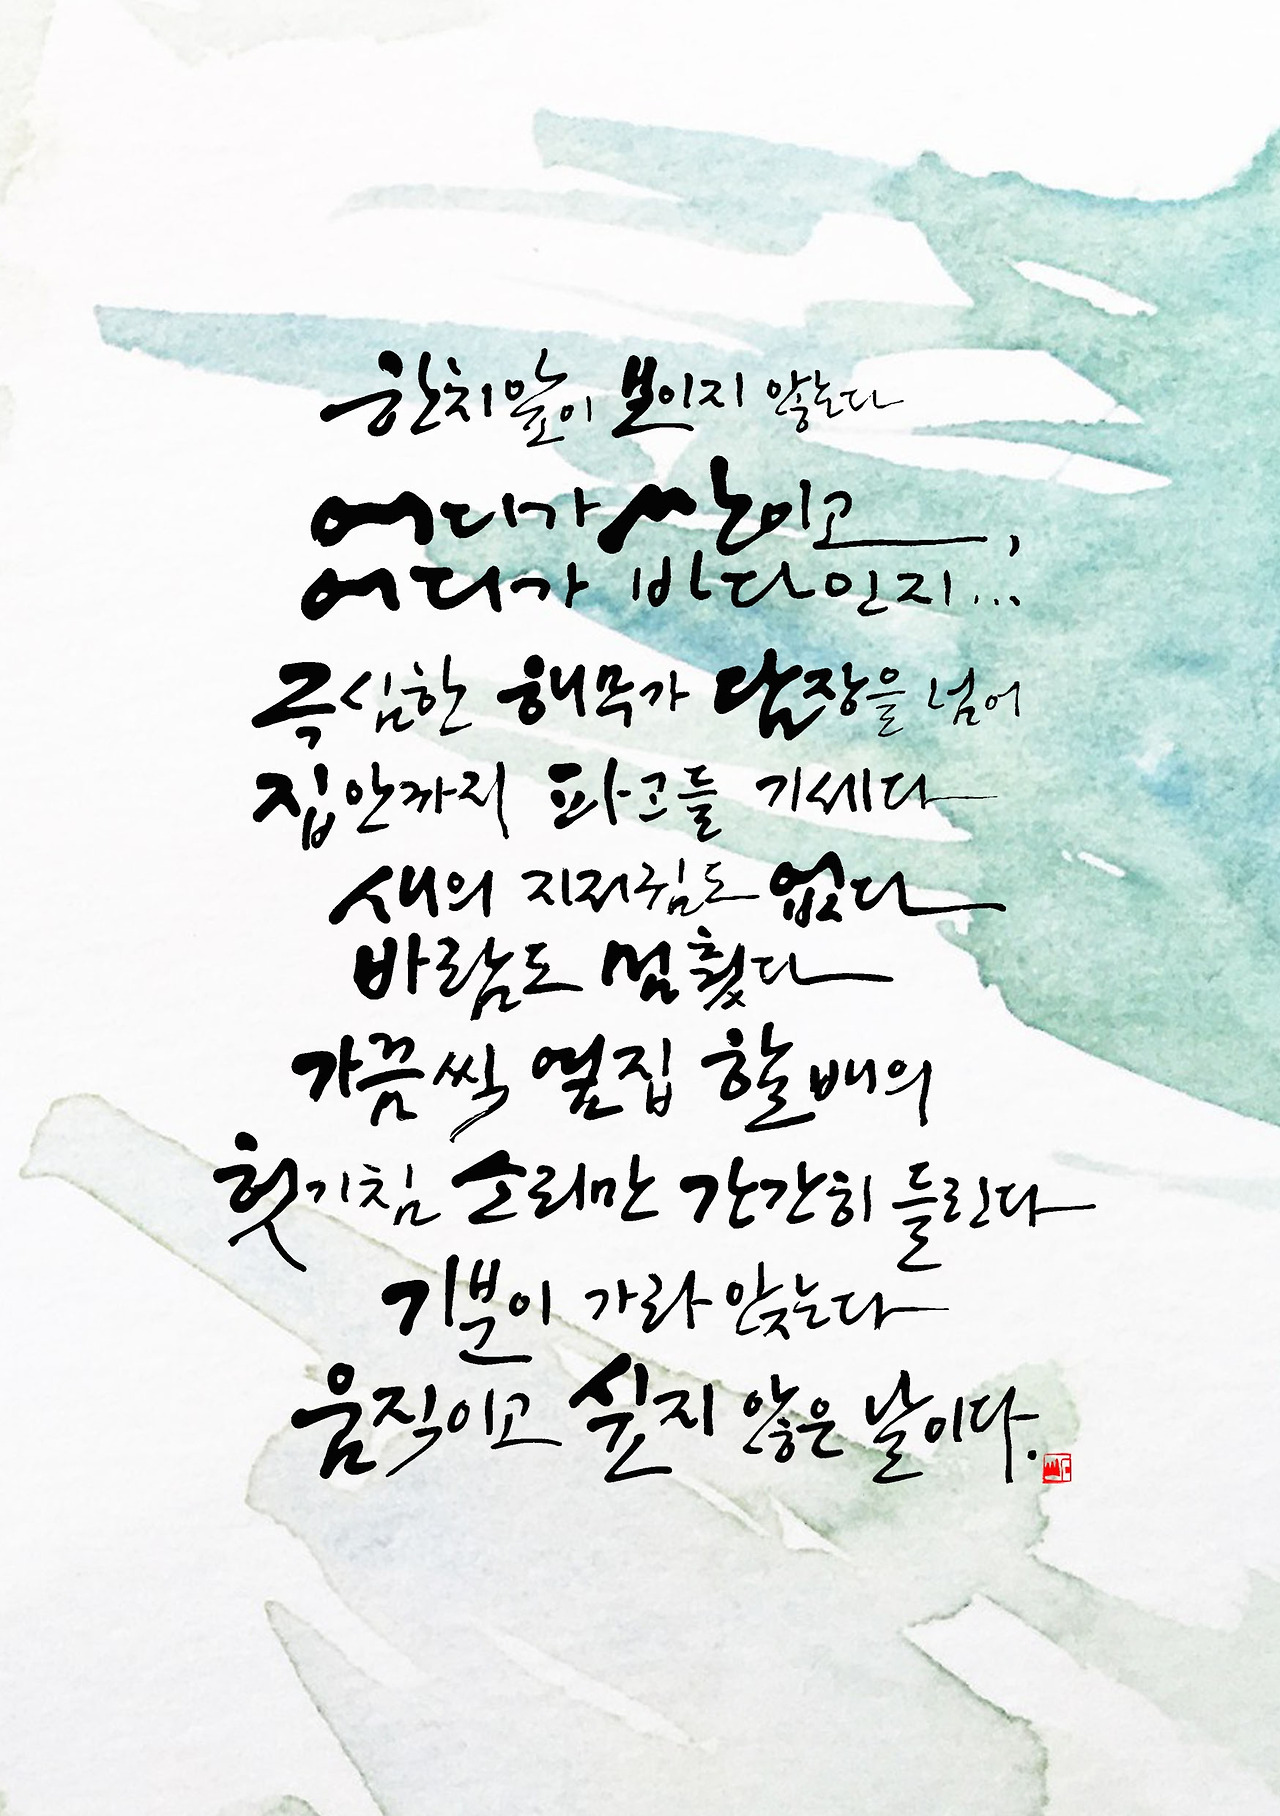 한치앞이 보이지 않는다
어디가 산이고,
어디가 바다인지...
극심한 해무가 담장을 넘어
집안까지 파고들 기세다
새의 지저귐도 없다
바람도 멈췄다
가끔씩 옆집 할배의
헛기침 소리만 간간히 들린다
기분이 가라앉는다
움직이고 싶지 않은 날이다.